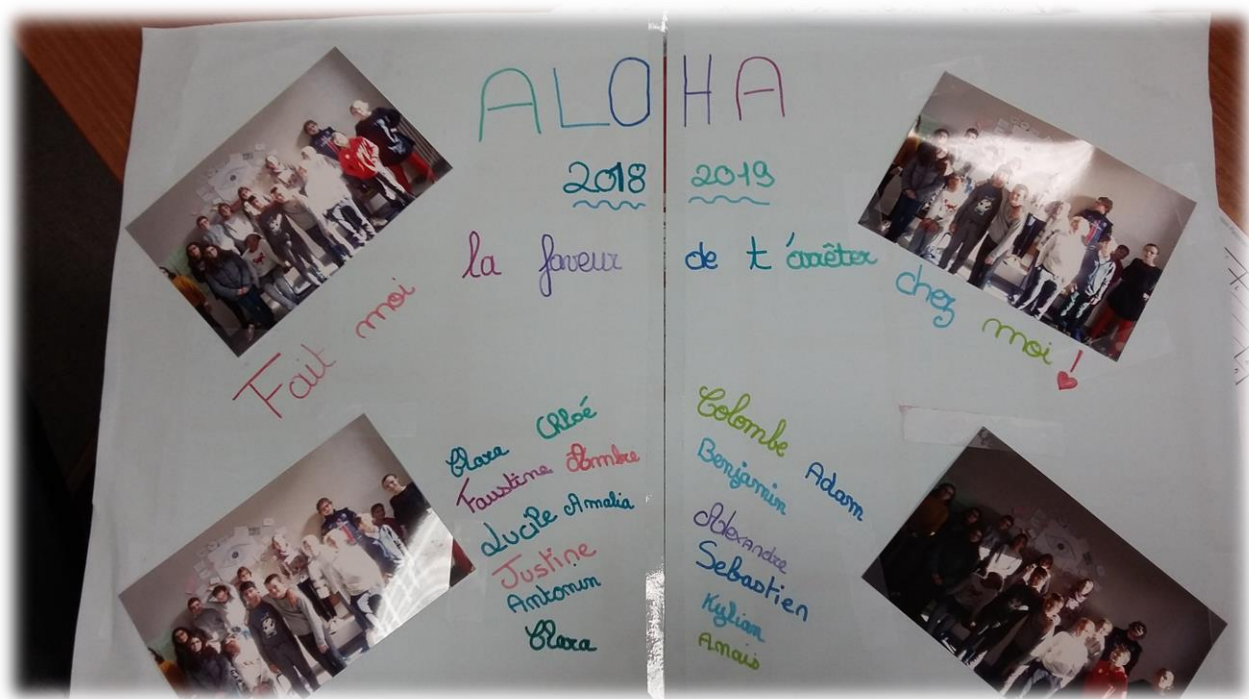 ALOHA
2018 2019
Fait moi la faveur de t'arrêter chez moi !
Clara Chloé
Faustine Ambre
Lucile Amalia
Justine
Antonin
Clara
Colombe
Benjamin Adam
Alexandre
Sebastien
Kylian
Anais